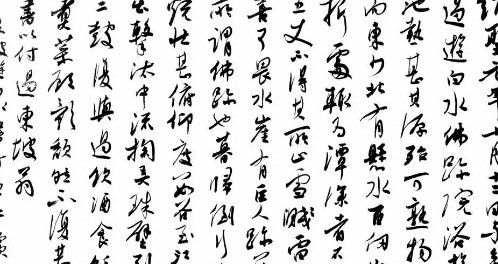 元年十月十二日與
過遊白水佛跡院浴於
池熱甚其源殆可熟物
而東少北有懸水百仞
折處輒為潭深者
五丈不得其所止雪濺雷
喜可畏水崖有巨人跡
所謂佛跡也暮歸倒行
燒壯甚俯仰度數谷至江
出擊汰中流掬弄珠璧到
二鼓復與過飲酒食餘
煮菜顧影頹然不復甚
書以付過東坡翁